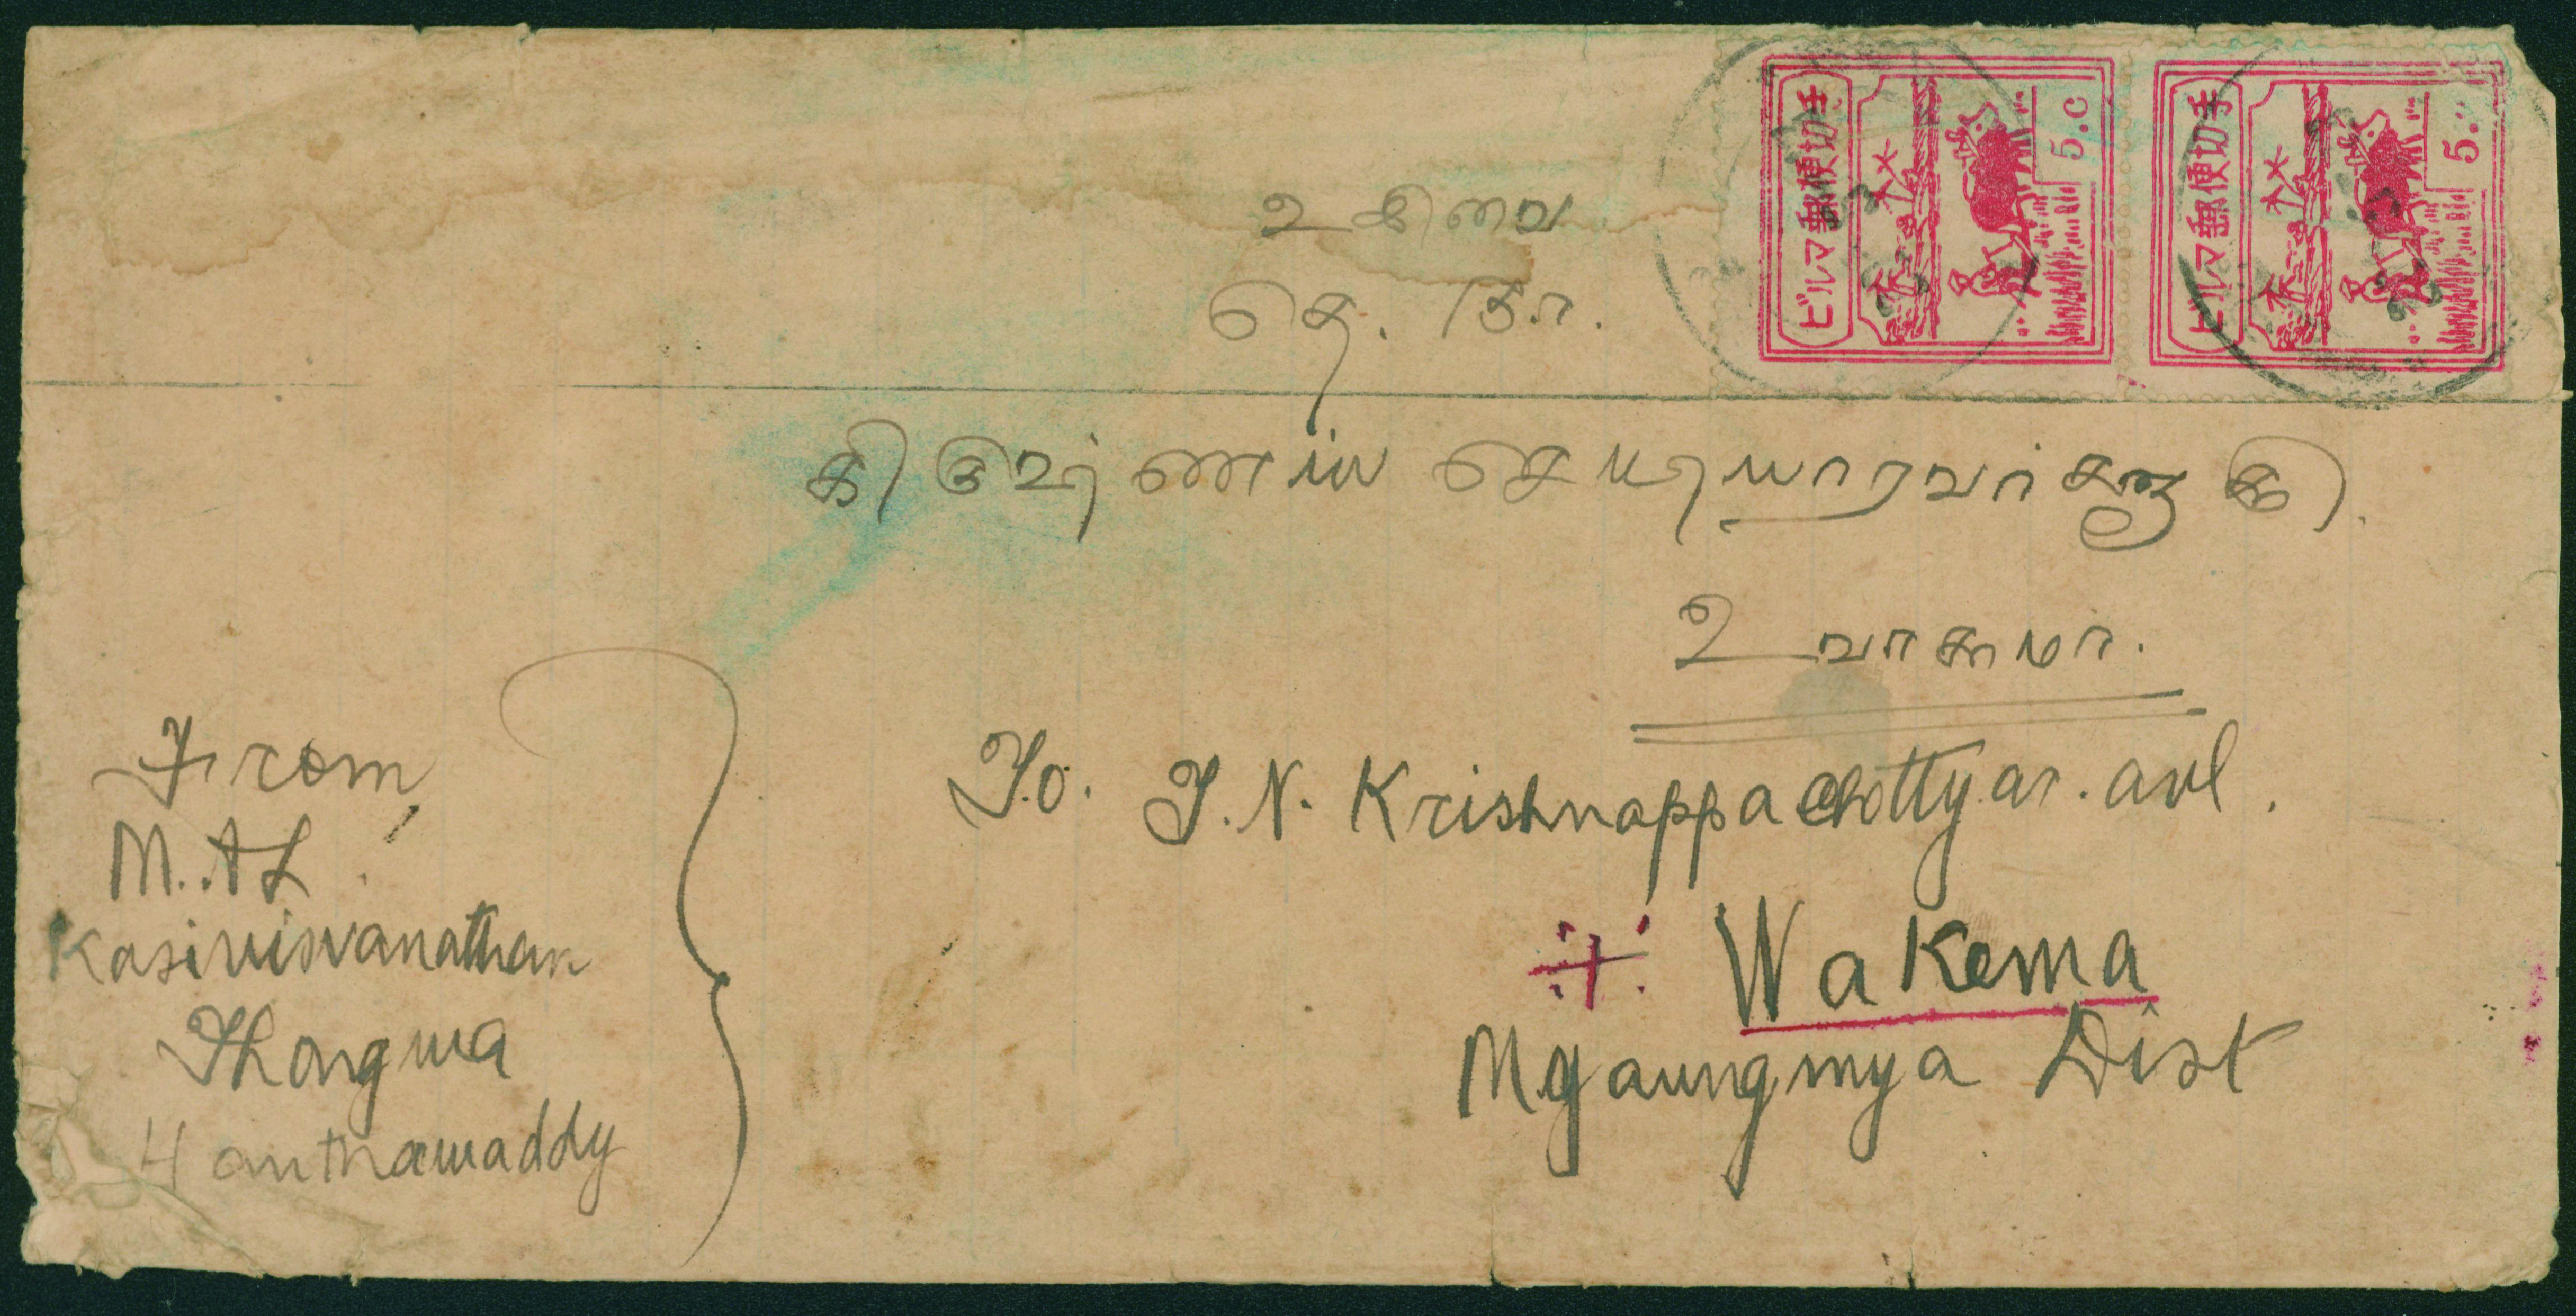 ビルマ郵便切手
5.c
ビルマ郵便切手
5.
உ சிவை
தெ. நா.
கிருஷ்ணப்ப செட்டியாரவர்களுக்கு.
உ வாகமா.
To. T. N. Krishnappa Chettyar. avl.
Wakema
Myaungmya Dist
From,
M. A L.
Kasivisvanathan
Thongwa
Hanthawaddy